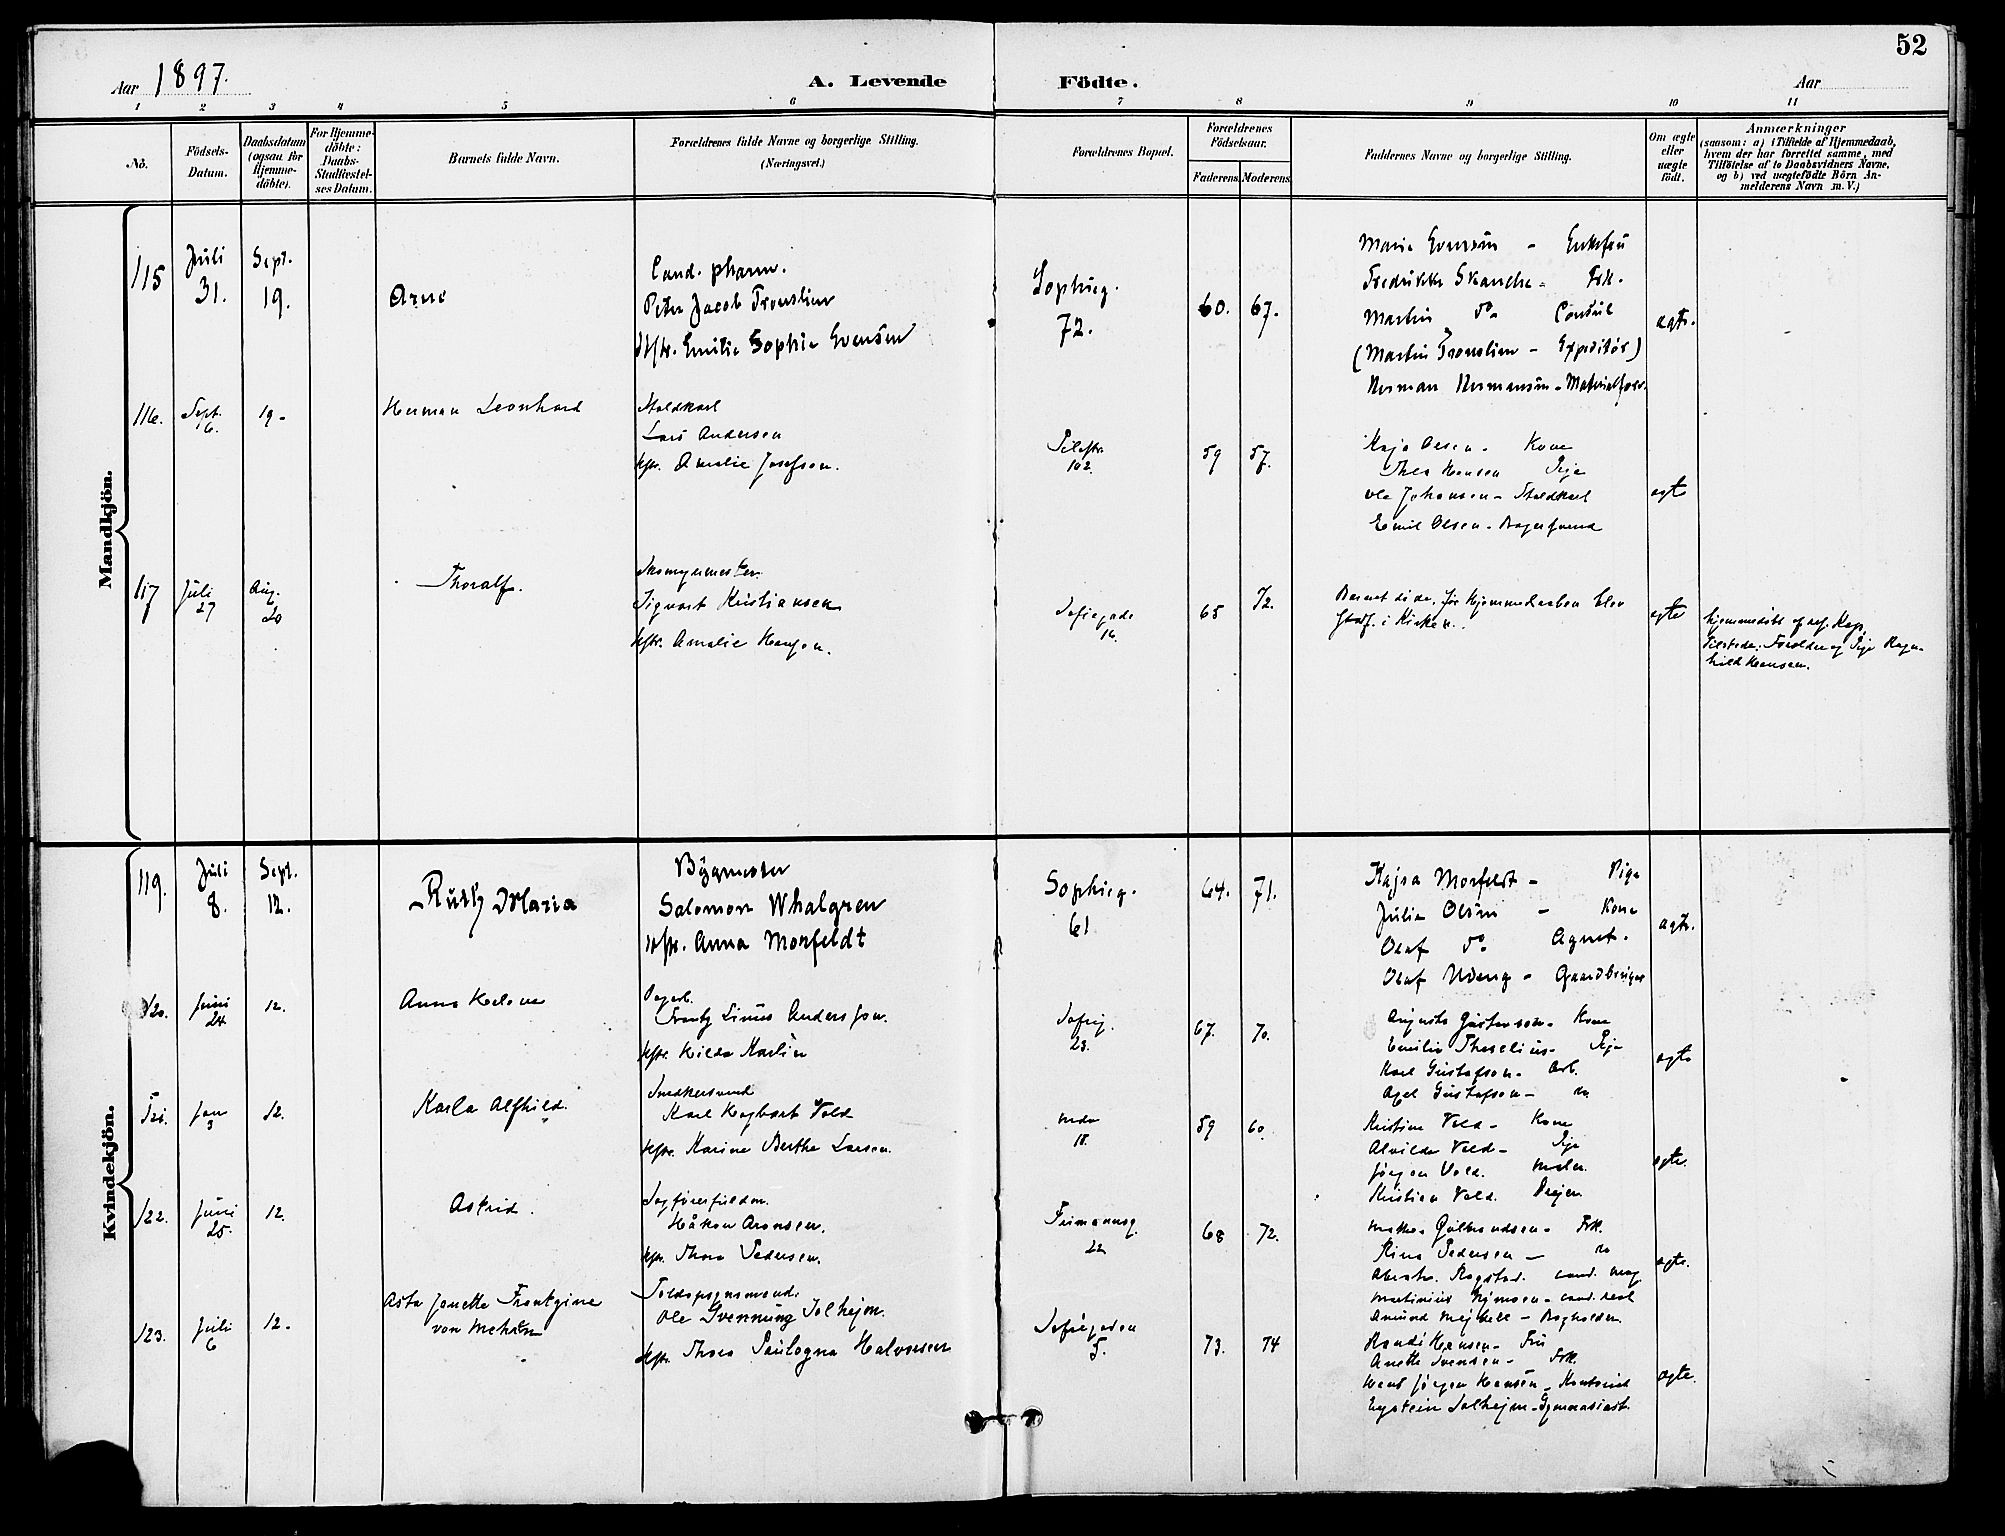 52
Aar 1897.
A. Levende Födte.
Aar
1 2 3 4 5 6 7 8 9 10 11
No.
Födsels-Datum.
Daabsdatum (ogsaa for Hjemme-döbte).
For Hjemme-döbte: Daabs-Stadfæstel-ses Datum.
Barnets fulde Navn.
Forældrenes fulde Navne og borgerlige Stilling.
(Næringsvei.)
Forældrenes Bopæl.
Forældrenes Födselsaar.
Faderens. Moderens.
Faddernes Navne og borgerlige Stilling.
Om ægte eller uægte födt.
Anmærkninger
(saasom: a) i Tilfælde af Hjemmedaab,
hvem der har forrettet samme, med
Tilföielse af to Daabsvidners Navne,
og b) ved uægtefödte Börn An-
melderens Navn m. V.)
Mandkjön.
115
Juli
31.
Sept.
19.
Arne
Cand. pharm.
Peter Jacob Tronslien
Hstr. Emilie Sophie Evensen
Sophieg.
72.
60. 67.
Marie Evensen - Enkefru
Fredrikke Skancke - Frk.
Martin do Consul
(Martin Tronslien - Expeditör)
Herman Hermansen - Materialforv.
ægte.
116.
Sept.
6.
19.
Herman Leonhard
Staldkarl
Lars Andersen
Hstr. Amalie Josefson.
Pilestr.
102.
59 57.
Kaja Olsen - Kone
Thea Hansen Pige
Ole Johansen - Staldkarl
Emil Olsen - Bagersvend
ægte
117
Juli
27
Aug.
20
Thoralf.
Skomagermester
Sigvart Kristiansen
Hstr. Amalie Hansen.
Sofiegade
16.
65 72.
Barnet döde, før Hjemmedaaben blev
stadf. i Kirken.
ægte
hjemmedöbt af res. Kap.
Tilstede: Forældre og Pige Ragn-
hild Hansen.
Kvindekjön.
119.
Juli
8.
Sept.
12.
Ruth Maria
Bygmester
Salomon Whalgren
Hstr. Anna Morfeldt
Sophieg.
61
64. 71.
Kajsa Morfeldt - Pige
Julie Olsen - Kone
Olaf do Agent.
Olaf Udeng - Gaardbruger
ægte.
120.
Juni
24
12.
Anna Helene
Dagarb.
Frantz Linus Andersson.
Hstr. Hilda Karlin
Sofieg.
23.
67. 70.
Augusta Gustavson - Kone
Emilie Theselius - Pige
Karl Gustafson - Arb.
Axel Gustafson - do
ægte
121.
Jan
3
12.
Karla Alfhild.
Snedkersvend
Karl Hagbart Vold
Hstr. Karine Berthe Larsen.
18.
59 60.
Kristine Vold - Kone
Alvilde Vold - Pige
Jørgen Vold. Maler.
Kristian Vold. Drejer.
ægte.
122.
Juni
25.
12.
Astrid.
Sagførerfuldm.
Håkon Aronsen.
Hstr. Thora Pedersen.
22
68 72.
Gulbrandsen - Frk.
Stina Pedersen - do
Rogstad. cand. mag
Martinius - cand. real
Amund - Bogholder
ægte.
123.
Juli
6
12.
Asta Janette Frantzine
von Mehren
Toldopsynsmand.
Ole Svenning Solhejm.
Hstr. Thora Paulogna Halvorsen
Sofiegaden
5.
73. 74
Randi Hansen - Fru
Anette Svensen - Frk.
Hans Jørgen Hansen - Kontorist
Eystein Solhejm - Gymnasiast.
ægte.